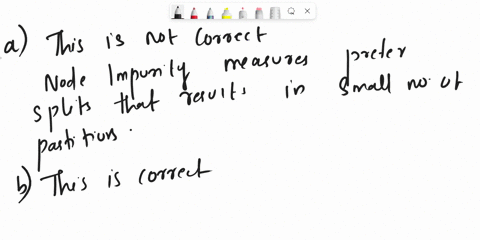 a) This is not correct
Node Impurity measures prefer
splits that results in small no of
partitions.
b) This is correct